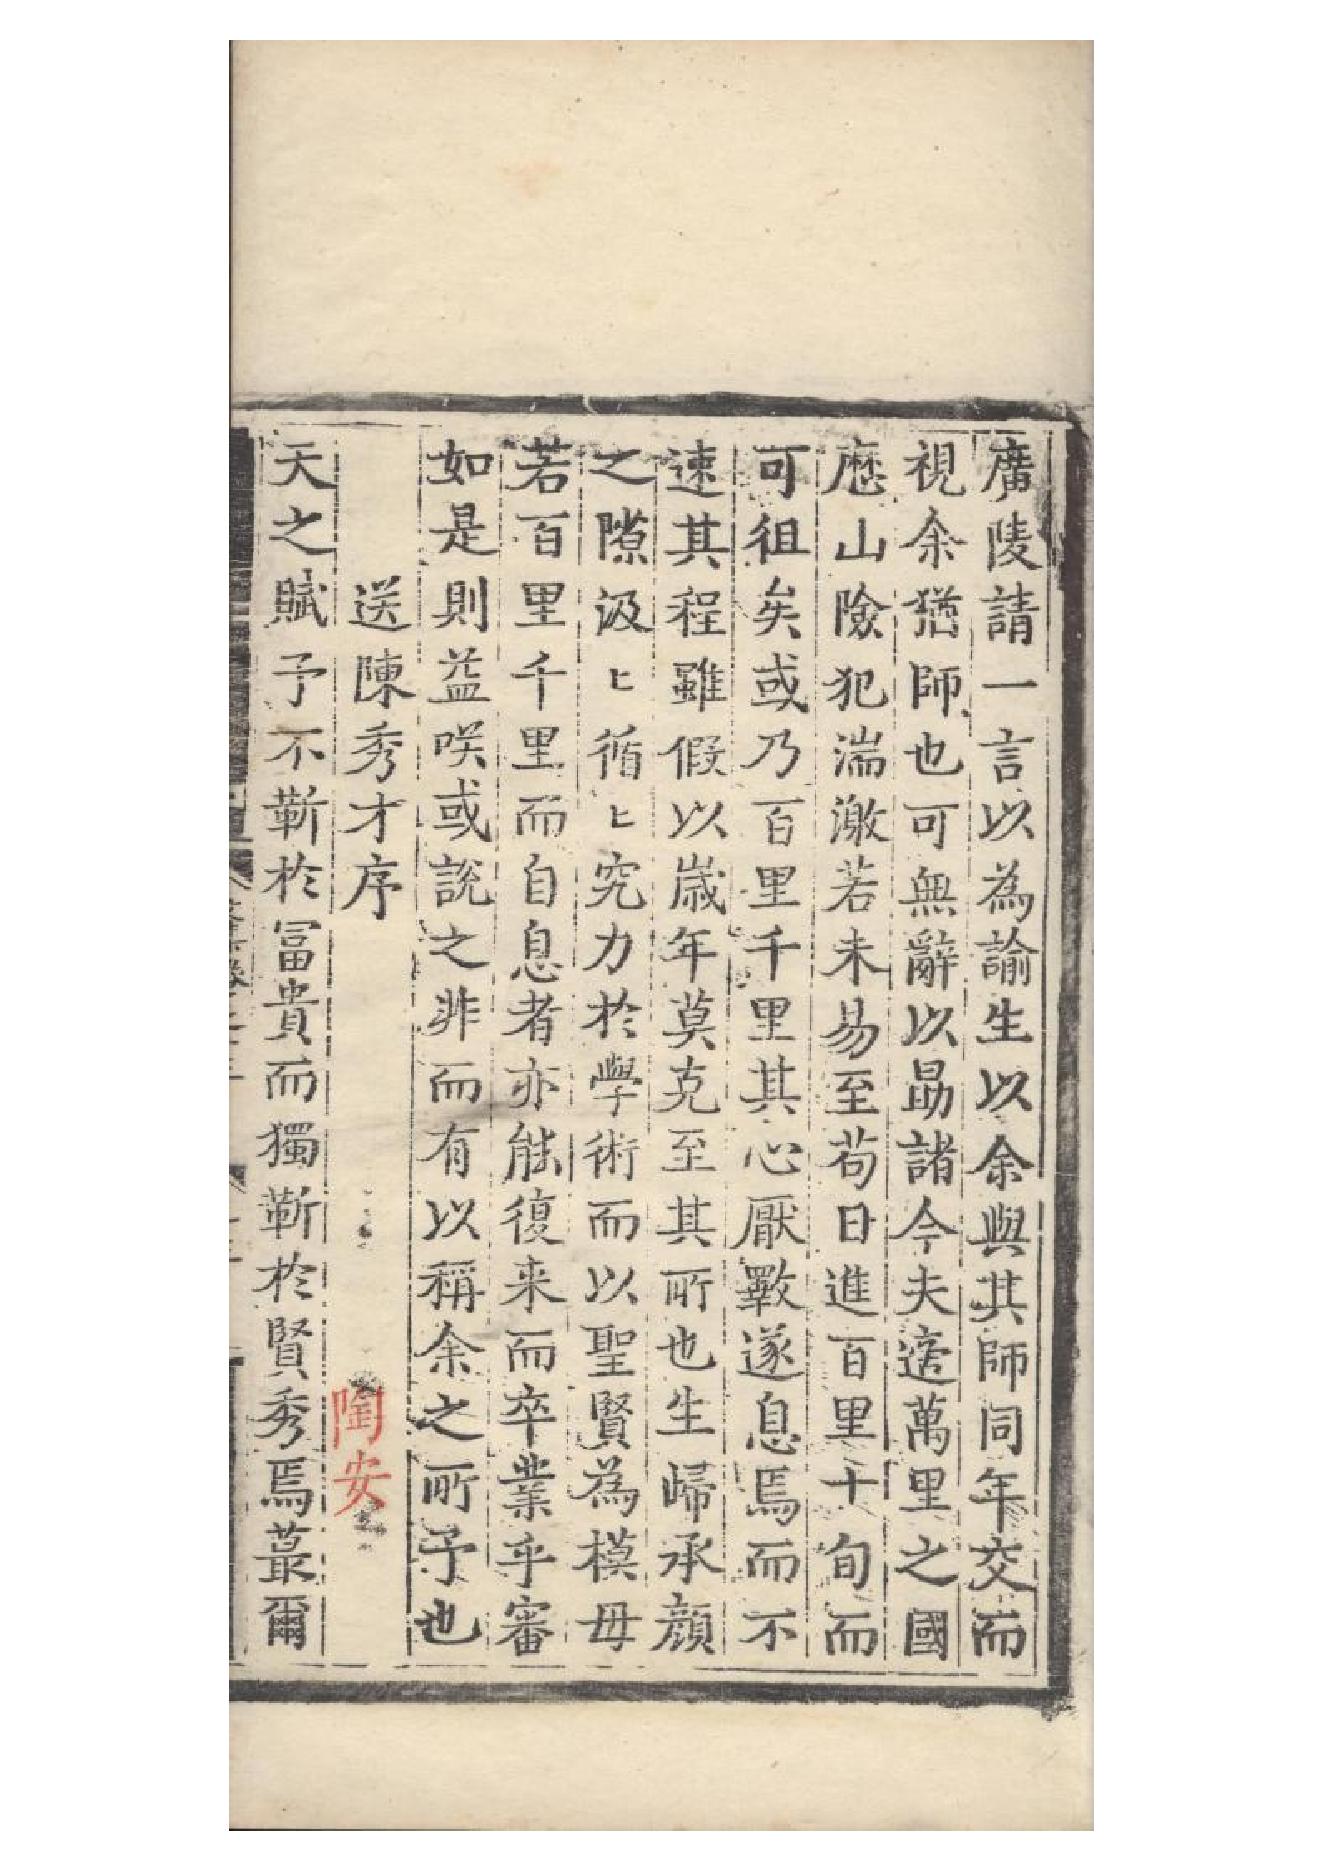 廣陵請一言以為諭生以余與其師同年交而
視余猶師也可無辭以勗諸今夫適萬里之國
歷山險犯湍激若未易至苟日進百里十旬而
可徂矣或乃百里千里其心厭斁遂息焉而不
速其程雖假以歲年莫克至其所也生歸承顔
之隙汲〻循〻究力於學術而以聖賢為模毋
若百里千里而自息者亦能復来而卒業乎審
如是則益咲或說之非而有以稱余之所予也
送陳秀才序
陶安
天之賦予不靳於冨貴而獨靳於賢秀焉蕞爾